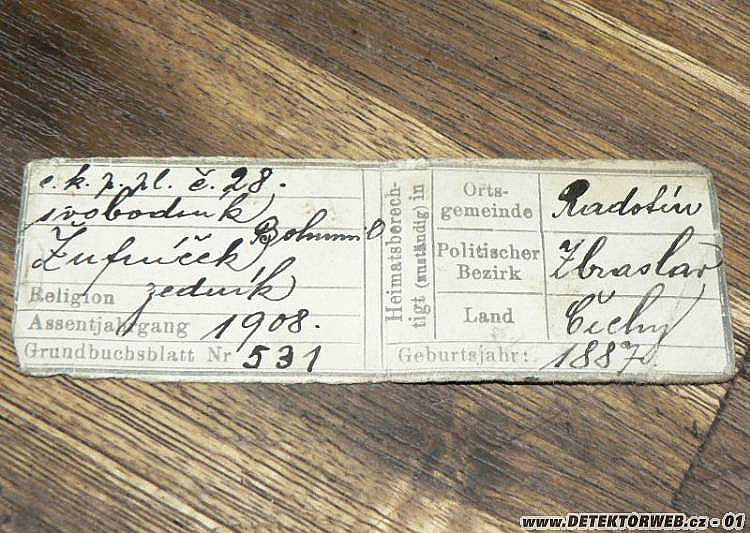 c. k. p. pl. č. 28.
svobodník
Bohumil
Žufníček
Religion zedník
Assentjahrgang 1908.
Grundbuchsblatt Nr 531
Heimatsberech-
tigt (zuständig) in
Orts-
gemeinde Radotín
Politischer
Bezirk Zbraslav
Land Čechy
Geburtsjahr: 1887.
www.DETEKTORWEB.cz - 01